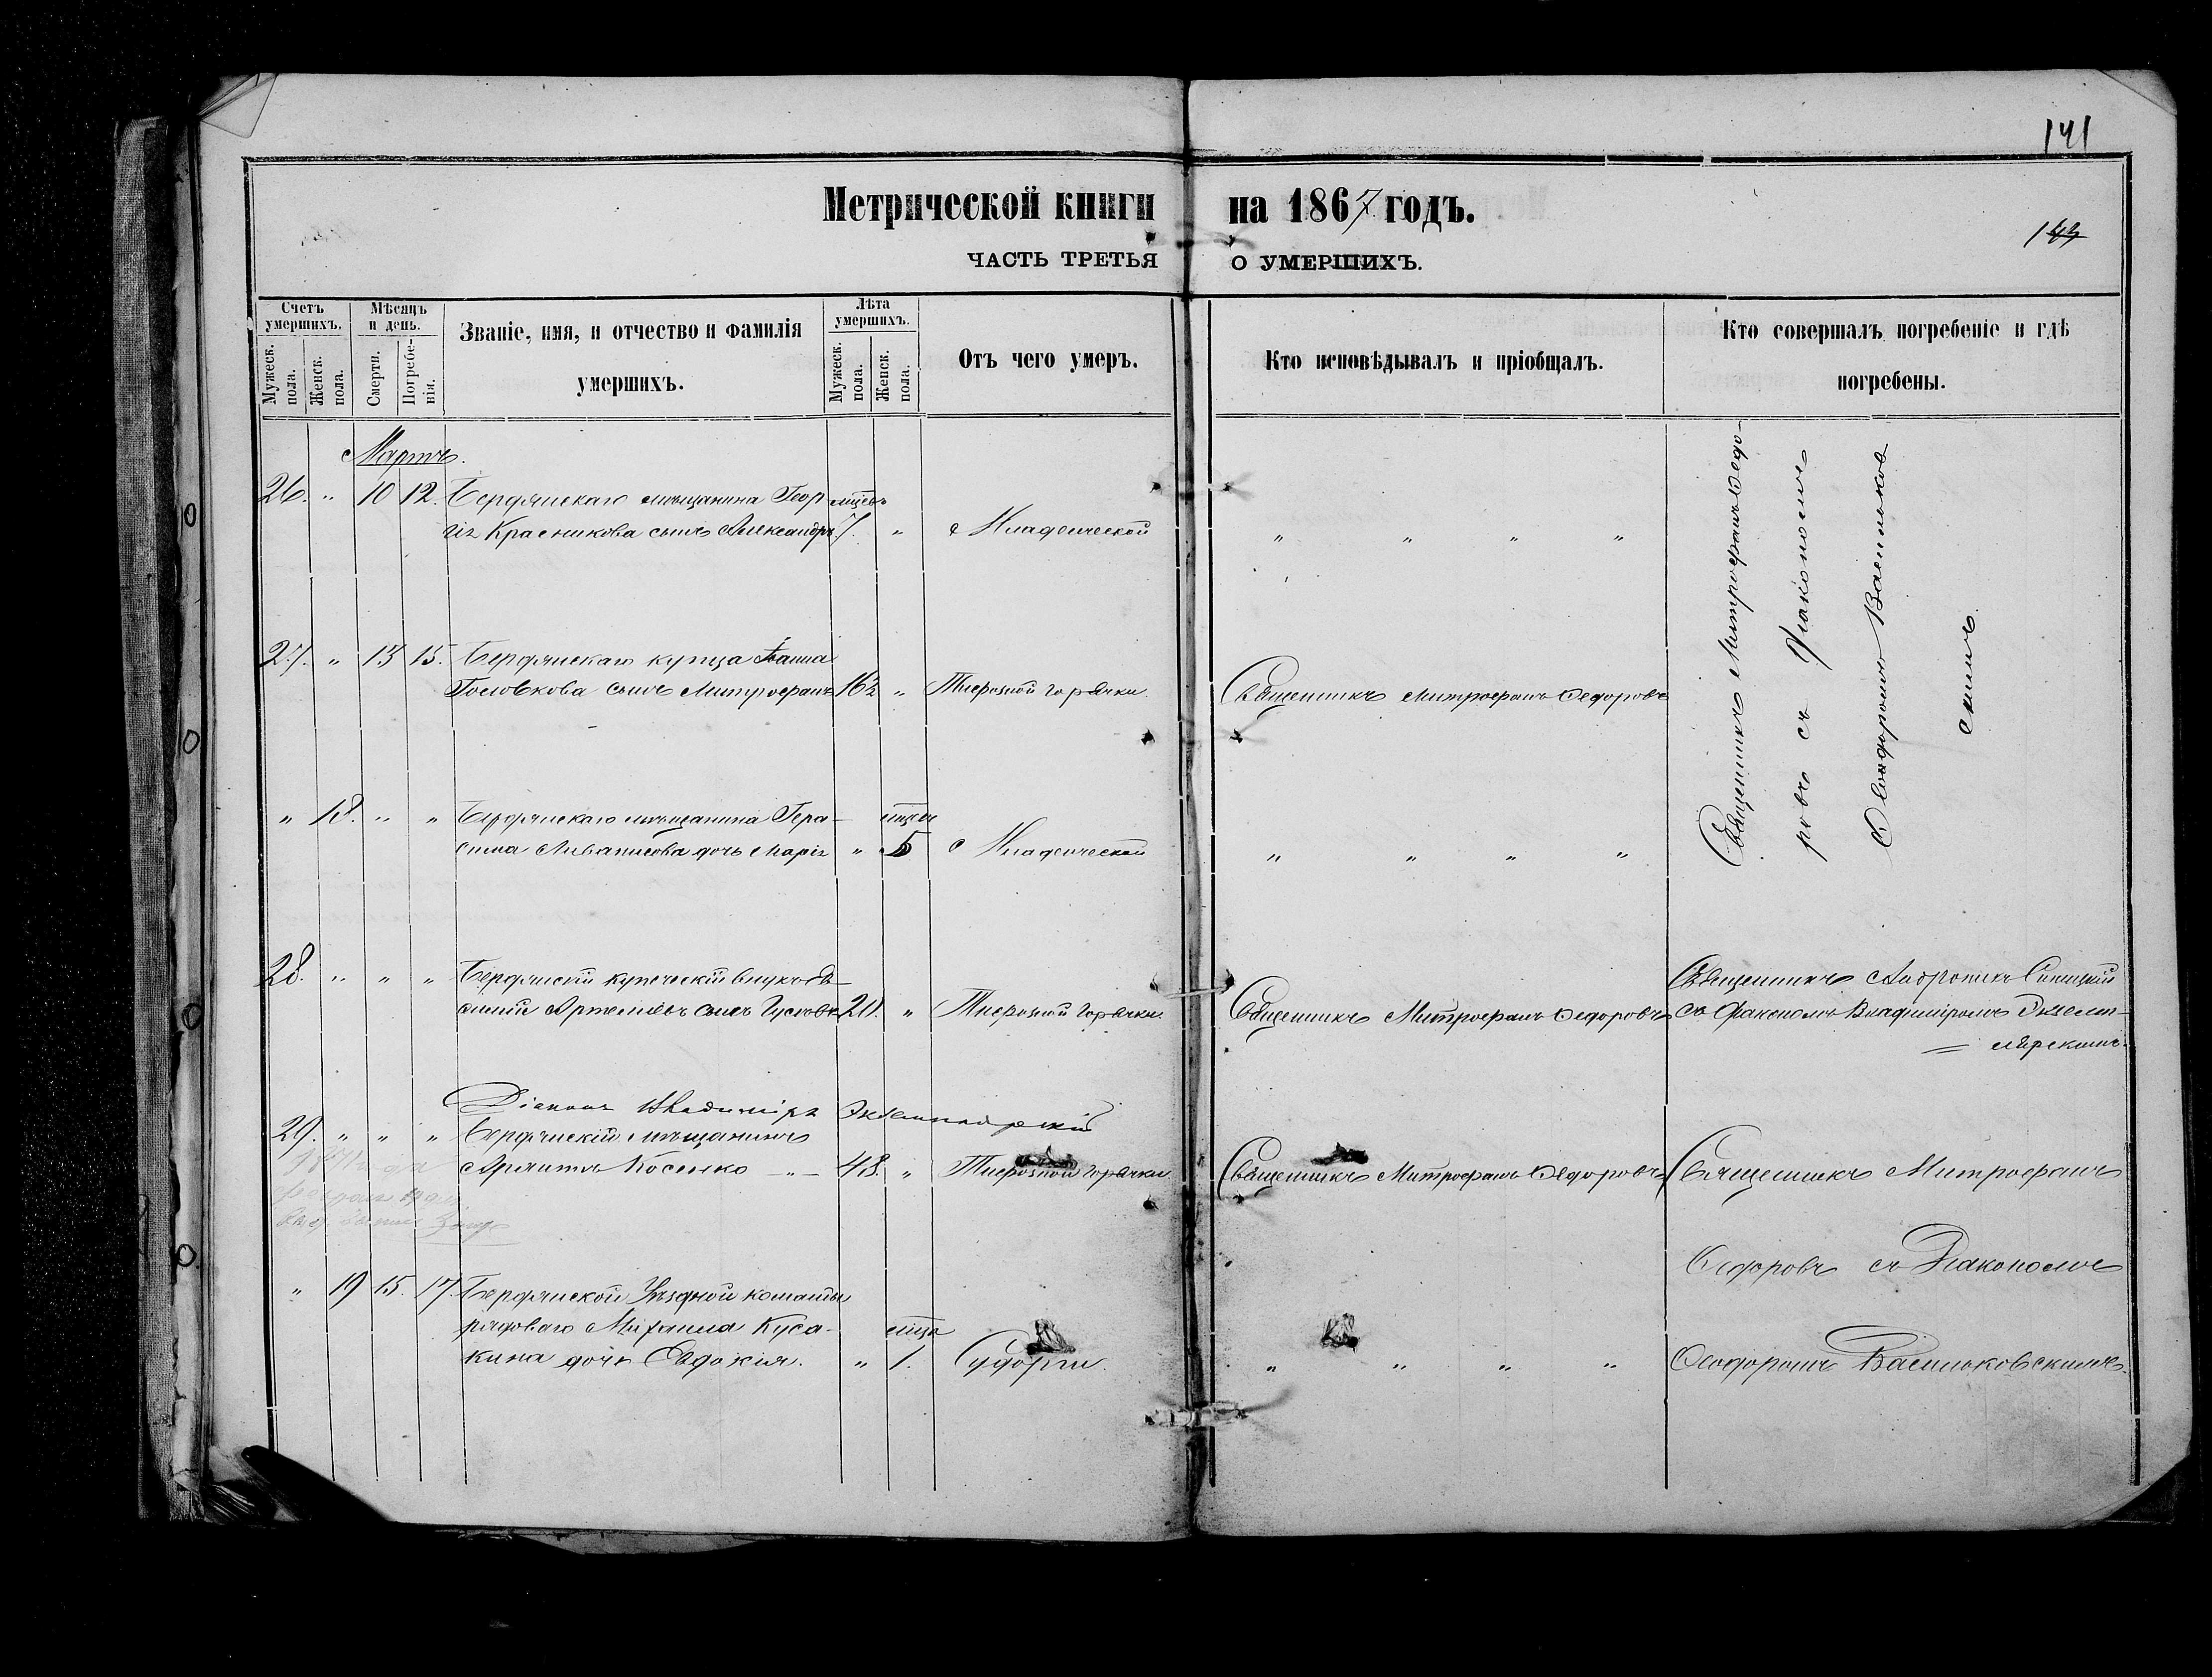 141
Метрической книги на 1867 годъ.
143
ЧАСТЬ ТРЕТЬЯ О УМЕРШИХЪ.
Счетъ умершихъ.
Мужеск. пола.
Женск. пола.
Мѣсяцъ и день.
Смерти.
Погребенія.
Званіе, имя, и отчество и фамилія
умершихъ.
Лѣта умершихъ.
Мужеск. пола.
Женск. пола.
Отъ чего умеръ.
Кто исповѣдывалъ и пріобщалъ.
Кто совершалъ погребеніе и гдѣ
погребены.
Мартъ.
26. " 10 12. Бердянскаго мѣщанина Геор-
гія Красникова сынъ Александръ 7. " Младенческой " " " "
Священникъ Митрофанъ Ѳедо-
ровъ съ Діакономъ
Ѳеодоромъ Васильков
скимъ
27. " 13 15. Бердянскаго купца Іоанна
Головкова сынъ Митрофанъ 16½ " Тифозной горячки Священникъ Митрофанъ Ѳедоровъ
" 18. " " Бердянскаго мѣщанина Гера-
сима дочь Марія " 5 Младенческой " " " "
28. " " " Бердянскій купеческій внукъ
Артемьевъ сынъ 20. " Тифозной горячки Священникъ Митрофанъ Ѳедоровъ
Священникъ Синицкій
съ Діакономъ Владиміромъ Экземп-
лярскимъ.
Діаконъ Владиміръ Экземплярскій
29. " " " Бердянскій мѣщанинъ
Косенко " 48. " Тифозной горячки Священникъ Митрофанъ Ѳедоровъ Священникъ Митрофанъ
Ѳедоровъ съ Діакономъ
" 19 15. 17. Бердянской Уѣздной команды
рядоваго Михаила Куса-
кина дочь Евдокія. " 1. Судорги. " " " " Ѳеодоромъ Васильковскимъ.